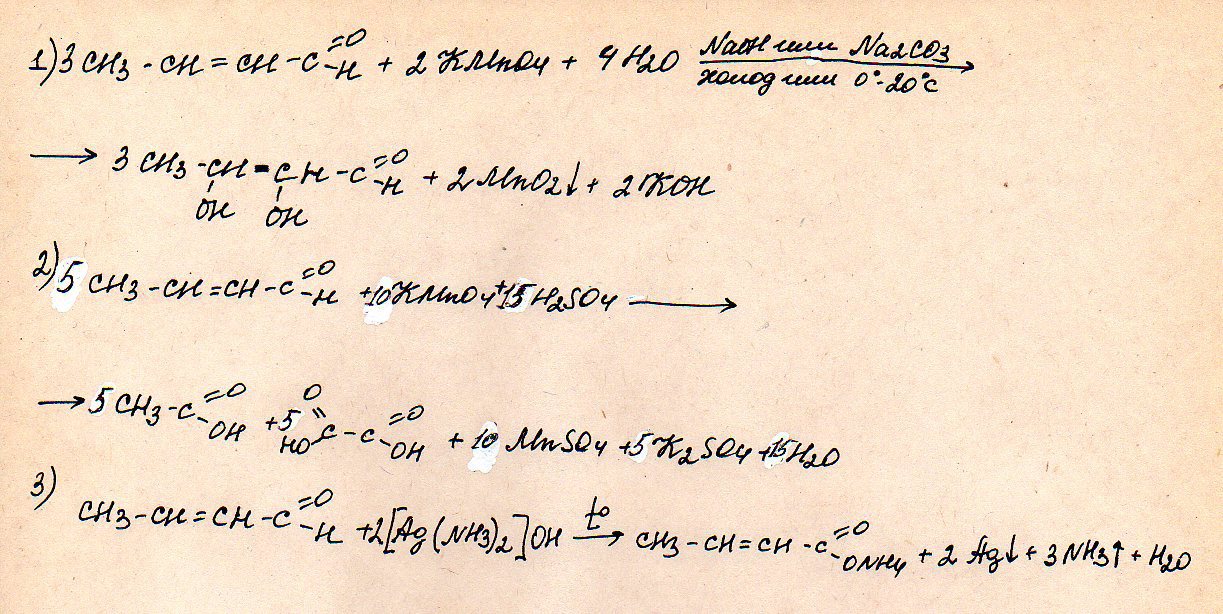 1) 3 CH3 - CH = CH - C =O -H + 2 KMnO4 + 4 H2O NaOH или Na2CO3
холод или 0°-20°C
→ 3 CH3 - CH - CH - C =O -H + 2 MnO2↓ + 2 KOH
OH OH
2) 5 CH3 - CH = CH - C =O -H + 10 KMnO4 + 15 H2SO4 →
→ 5 CH3 - C =O -OH + 5 O = HO C - C =O -OH + 10 MnSO4 + 5 K2SO4 + 15 H2O
3) CH3 - CH = CH - C =O -H + 2[Ag(NH3)2]OH t° → CH3 - CH = CH - C =O -ONH4 + 2 Ag↓ + 3 NH3↑ + H2O